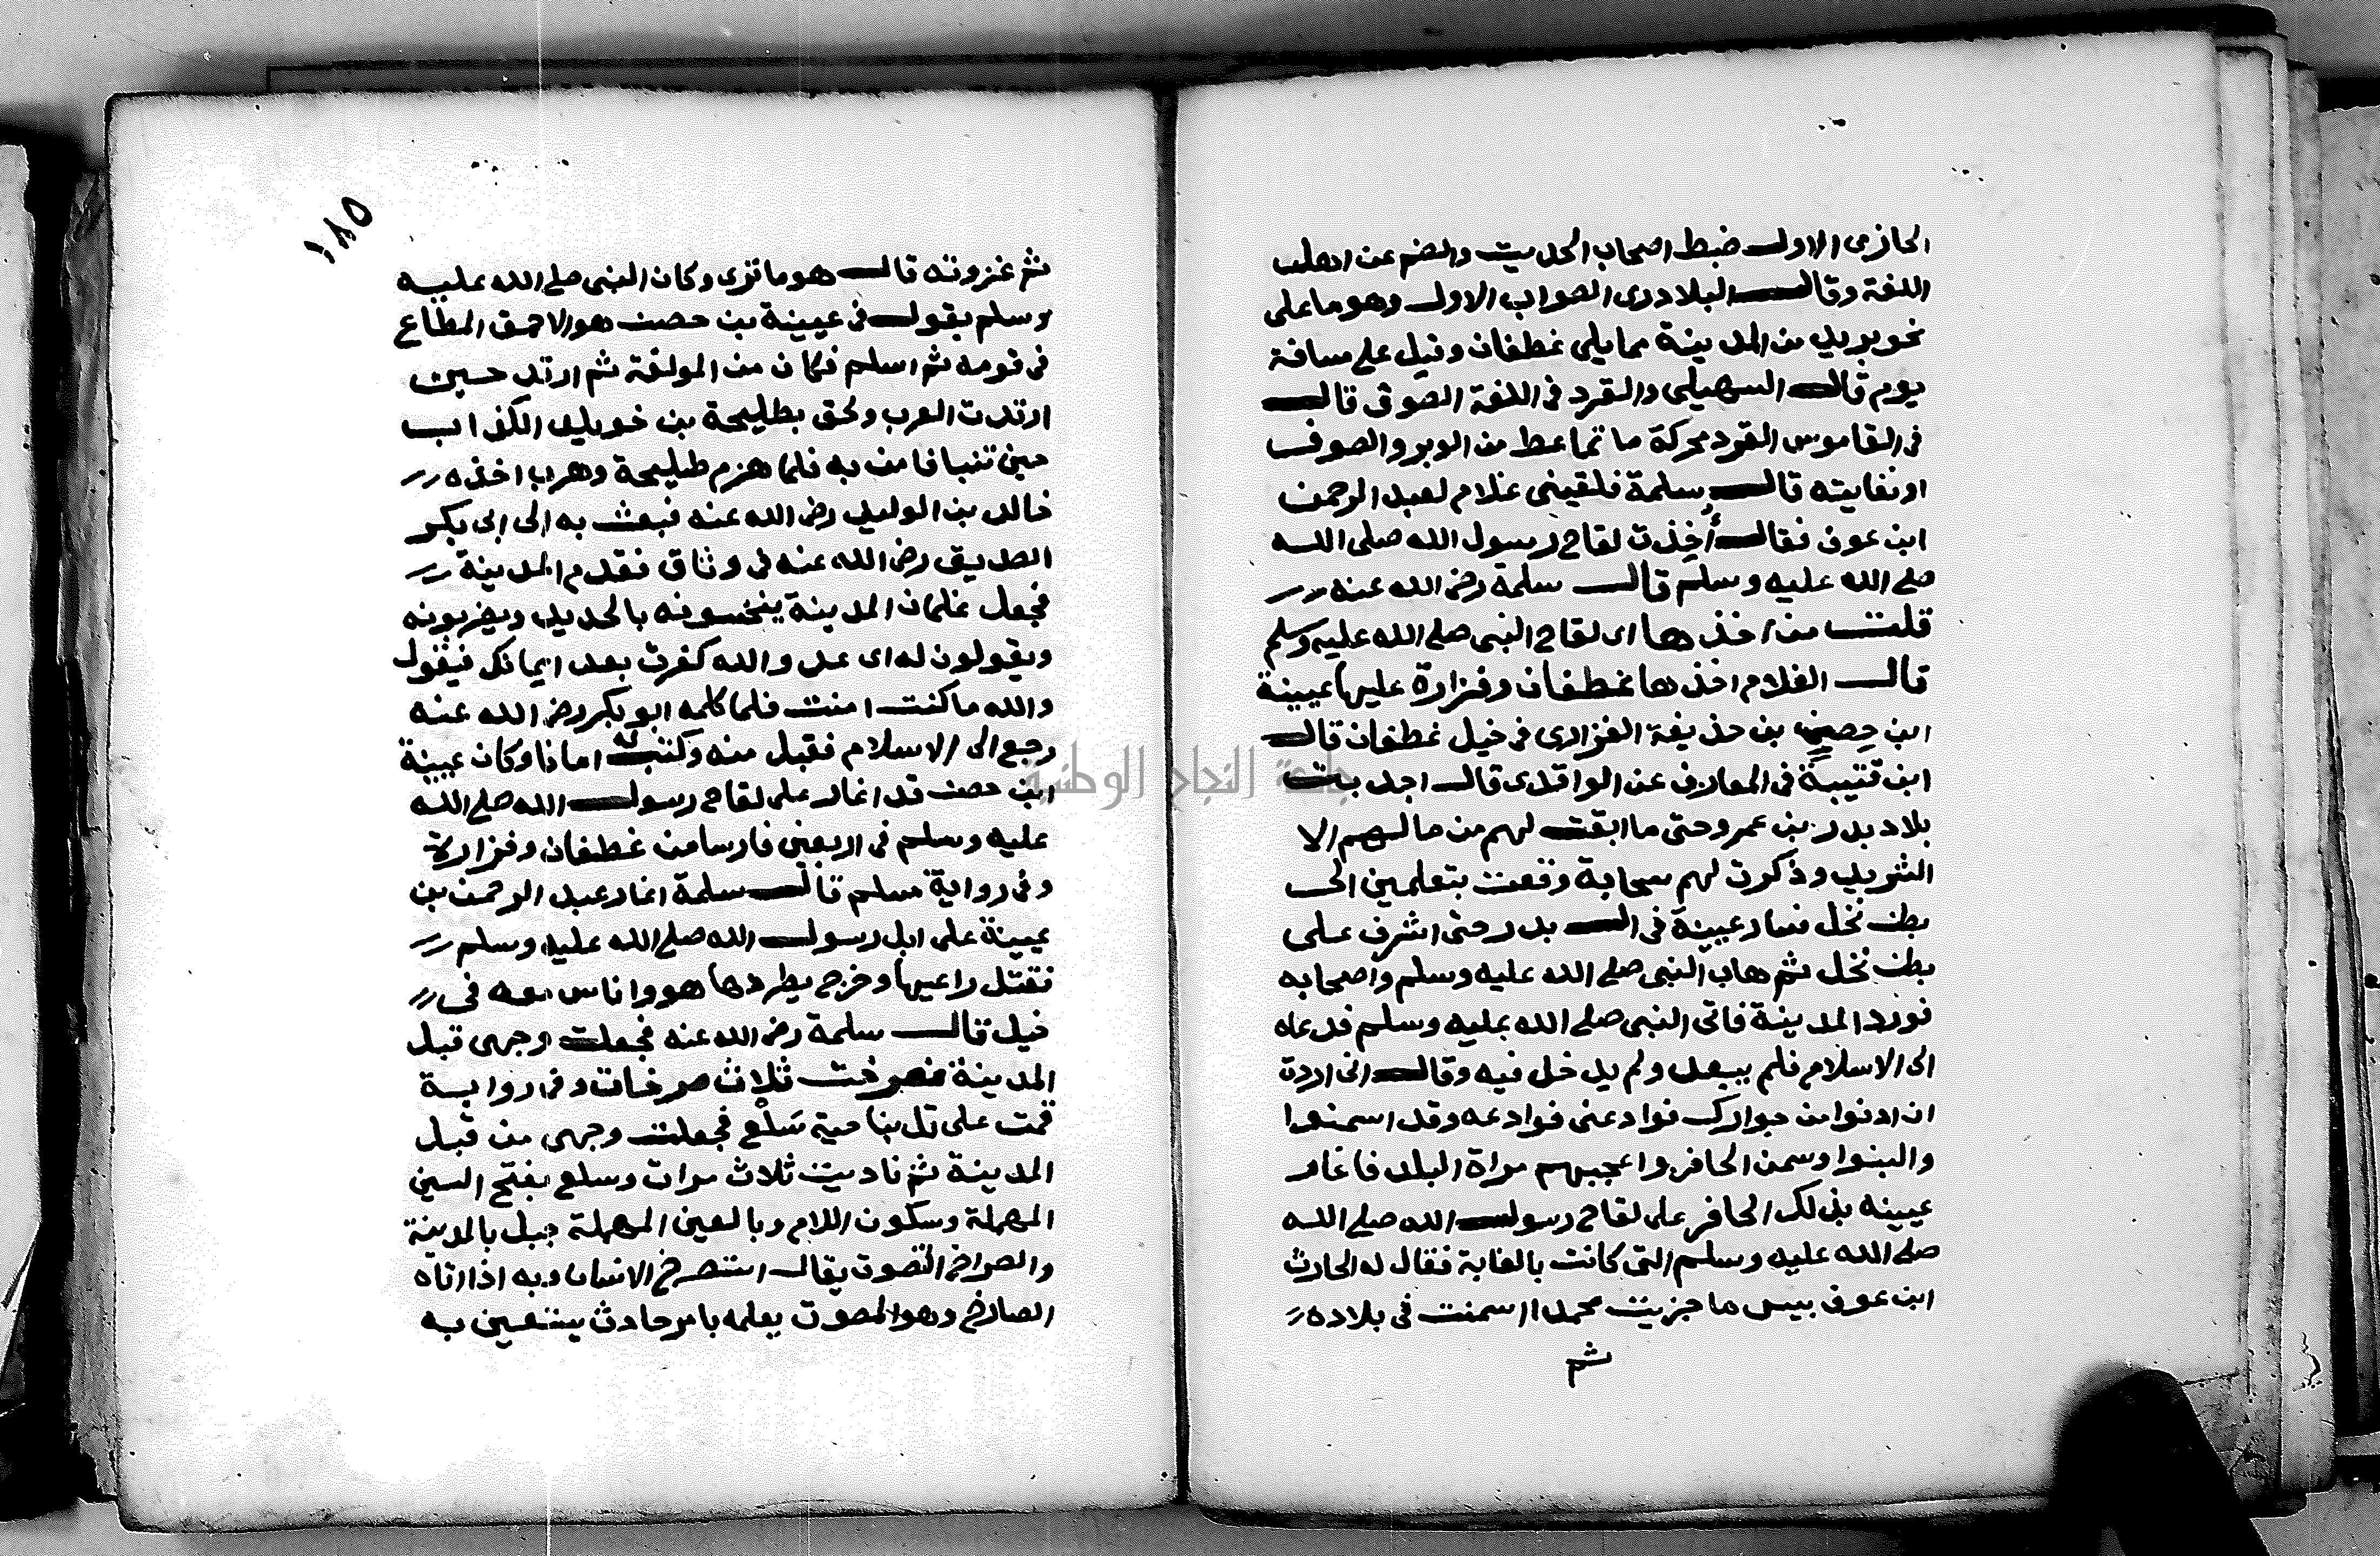 الحازمى الاول ضبط اصحاب الحديث والضم عن اهل
اللغة وقال البلادرى الصواب الاول وهو ما على
نحو بريد من المدينة مما يلى غطفان وقيل على مسافة
يوم قال السهيلى والقرد فى اللغة الصوف قال
فى القاموس القرد محركة ما تماعط من الوبر والصوف
او نفايته قال سلمة فلقينى غلام لعبد الرحمن
ابن عوف فقال أُخِذت لقاح رسول الله صلى الله
صلى الله عليه وسلم قال سلمة رضى الله عنه
قلت من اخذها اى لقاح النبى صلى الله عليه وسلم
قال الغلام اخذها غطفان وفزارة عليها عيينة
ابن حِصن بن حذيفة الفزارى فى خيل غطفان قال
ابن قتيبة فى المعارف عن الواقدى قال اجدبت
بلاد بدر بن عمرو حتى ما ابقت لهم من مالهم الا
الشريد وذكرت لهم سحابة وقعت بتعلمين الى
بطن نخل فسار عيينة فى ال بدر حتى اشرف على
بطن نخل ثم هاب النبى صلى الله عليه وسلم واصحابه
فورد المدينة فاتى النبى صلى الله عليه وسلم فدعاه
الى الاسلام فلم يبعد ولم يدخل فيه وقال انى اردت
ان ادنوا من جوارك فوادعنى فوادعه وقد اسمنوا
والبنوا وسمن الحافر واعجبهم مراة البلد فاغار
عيينه بذلك الحافر على لقاح رسول الله صلى الله
صلى الله عليه وسلم التى كانت بالغابة فقال له الحارث
ابن عوف بيس ما جزيت محمدا اسمنت فى بلاده
ثم
١٨٥
ثم غزوته قال هو ما ترى وكان النبى صلى الله عليه
وسلم يقول فى عيينة بن حصن هو الاحمق المطاع
فى قومه ثم اسلم فكان من المولفة ثم ارتد حين
ارتدت العرب ولحق بطليحة بن خويلد الكذاب
حين تنبا فامن به فلما هزم طليحة وهرب اخذه
خالد بن الوليد رضى الله عنه فبعث به الى ابى بكر
الصديق رضى الله عنه فى وثاق فقدم المدينة
فجعل غلمان المدينة ينخسونه بالحديد ويضربونه
ويقولون له اى عدو الله كفرت بعد ايمانك فيقول
والله ما كنت امنت فلما كلمه ابو بكر رضى الله عنه
رجع الى الاسلام فقبل منه وكتب له امانا وكان عيينة
ابن حصن قد اغار على لقاح رسول الله صلى الله
عليه وسلم فى اربعين فارسا من غطفان وفزارة
وفى رواية مسلم قال سلمة اغار عبد الرحمن بن
عيينة على ابل رسول الله صلى الله عليه وسلم
فقتل راعيها وخرج يطردها هو واناس معه فى
خيل قال سلمة رضى الله عنه فجعلت وجهى قبل
المدينة فصرخت ثلاث صرخات وفى رواية
قمت على تل بناحية سَلْع فجعلت وجهى من قبل
المدينة ثم ناديت ثلاث مرات وسلع بفتح السين
المهملة وسكون اللام وبالعين المهملة جبل بالمدينة
والصراخ التصوت يقال استصرخ الانسان وبه اذا اتاه
الصارخ وهو المصوت يعلمه بامر حادث يستعين به
جامعة النجاح الوطنية